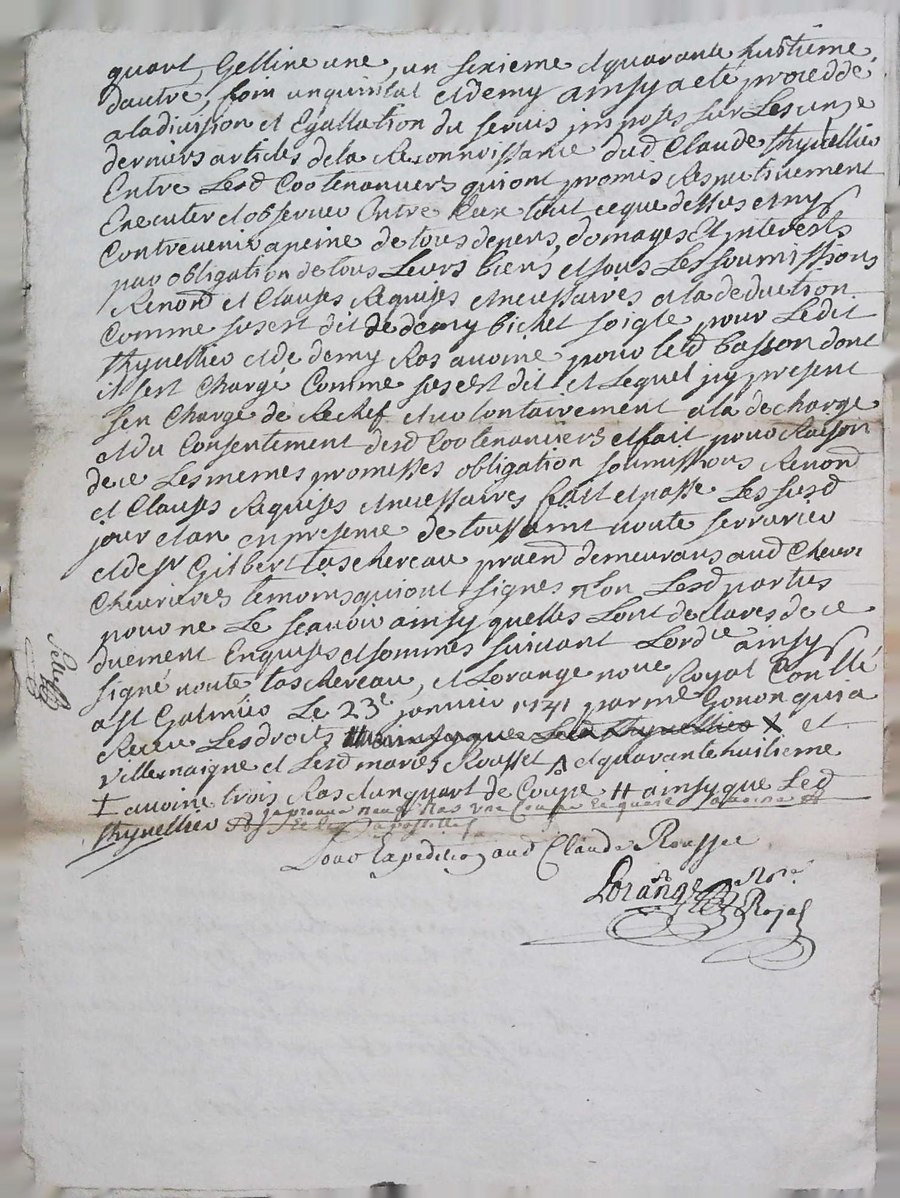 quart, Gelline une, un sixieme et quarante huitieme
dautre, foin un quintal et demy ainsy a eté procedde
a la division et Egallation du servis imposes sur Les unze
derniers articles de la Reconnoissance dud Claude thyvellier
Entre Lesd Cootenanciers qui ont promis Respectivement
Executer et observer Entre Eux tout ce que dessus et ny
Contrevenir a peine de tous depens, domages Et interests
par obligation de tous Leurs biens et sous Les soumissions
Renond et Clauses Requises et necessaires et a la deduction
Comme sus est dit de demy bichet soigle pour Ledit
thyvellier et de demy Ras avoine pour led basson dont
il sest Chargé Comme sus est dit et Lequel icy present
sen Charge de Rechef et volontairement a la decharge
et du Consentement desd Cootenanciers et fait pour Raison
de ce Les memes promesses obligation soumissions Renond
et Clauses Requises et necessaires fait et passé Les susd
jour et an en presence de toussaint noute serrurier
et de sr Gilbert taschereau praend demeurans aud Chevri
Chevrieres temoins qui ont signes non Lesd parties
pour ne Le scavoir ainsy quelles Lont declarés de ce
duement Enquises et sommes suivant Lord.ce ainsy
signé noute taschereau, et Lorange no.re Royal Conllé
a st Galmier Le 23e janvier 1741 par me Gonon qui a
Receu Les droits ainsy que Led thyvellier X et
villemaigne et Lesd mariés Rousset et quarante huitieme
‡ avoine trois Ras et un quart de Coupe # ainsy que Led
thyvellier
Pour Expedition aud Claude Rousset
Lorange No.re
Royal